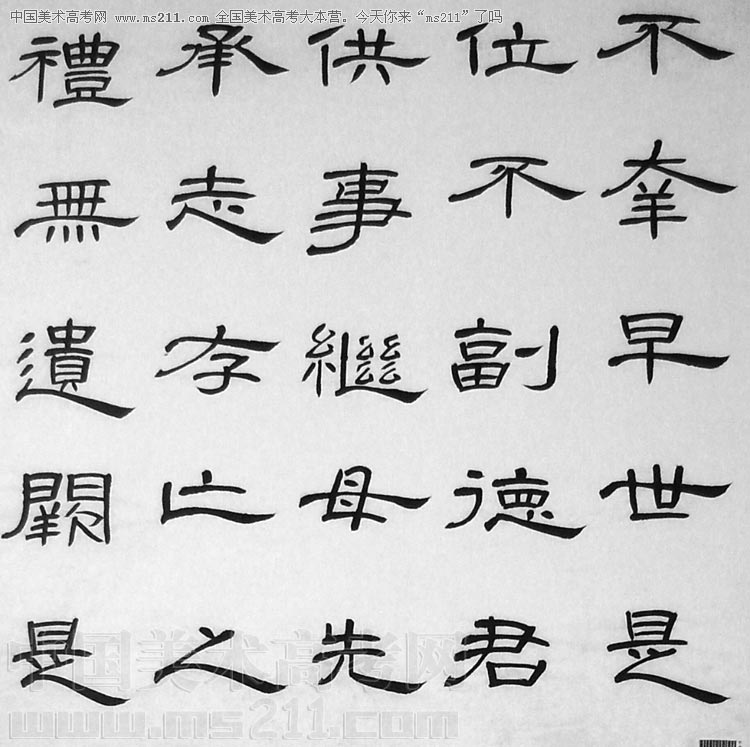 中国美术高考网 www.ms211.com 全国美术高考大本营。今天你来“ms211”了吗
不幸早世是
位不副德君
供事繼母先
承志存亡之
禮無遺闕是
中国美术高考网
www.ms211.com